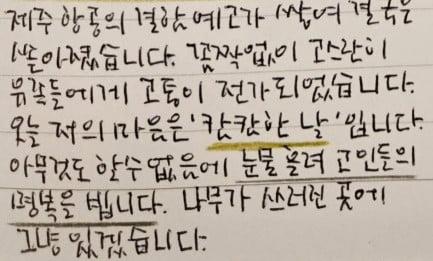 제주 항공의 결함 예고가 쌓여 결국은
쏟아졌습니다. 꼼짝없이 고스란히
유족들에게 고통이 전가되었습니다.
오늘 저의 마음은 '캄캄한 날' 입니다.
아무것도 할수 없음에 눈물 흘려 고인들의
명복을 빕니다. 나무가 쓰러진 곳에
그냥 있겠습니다.